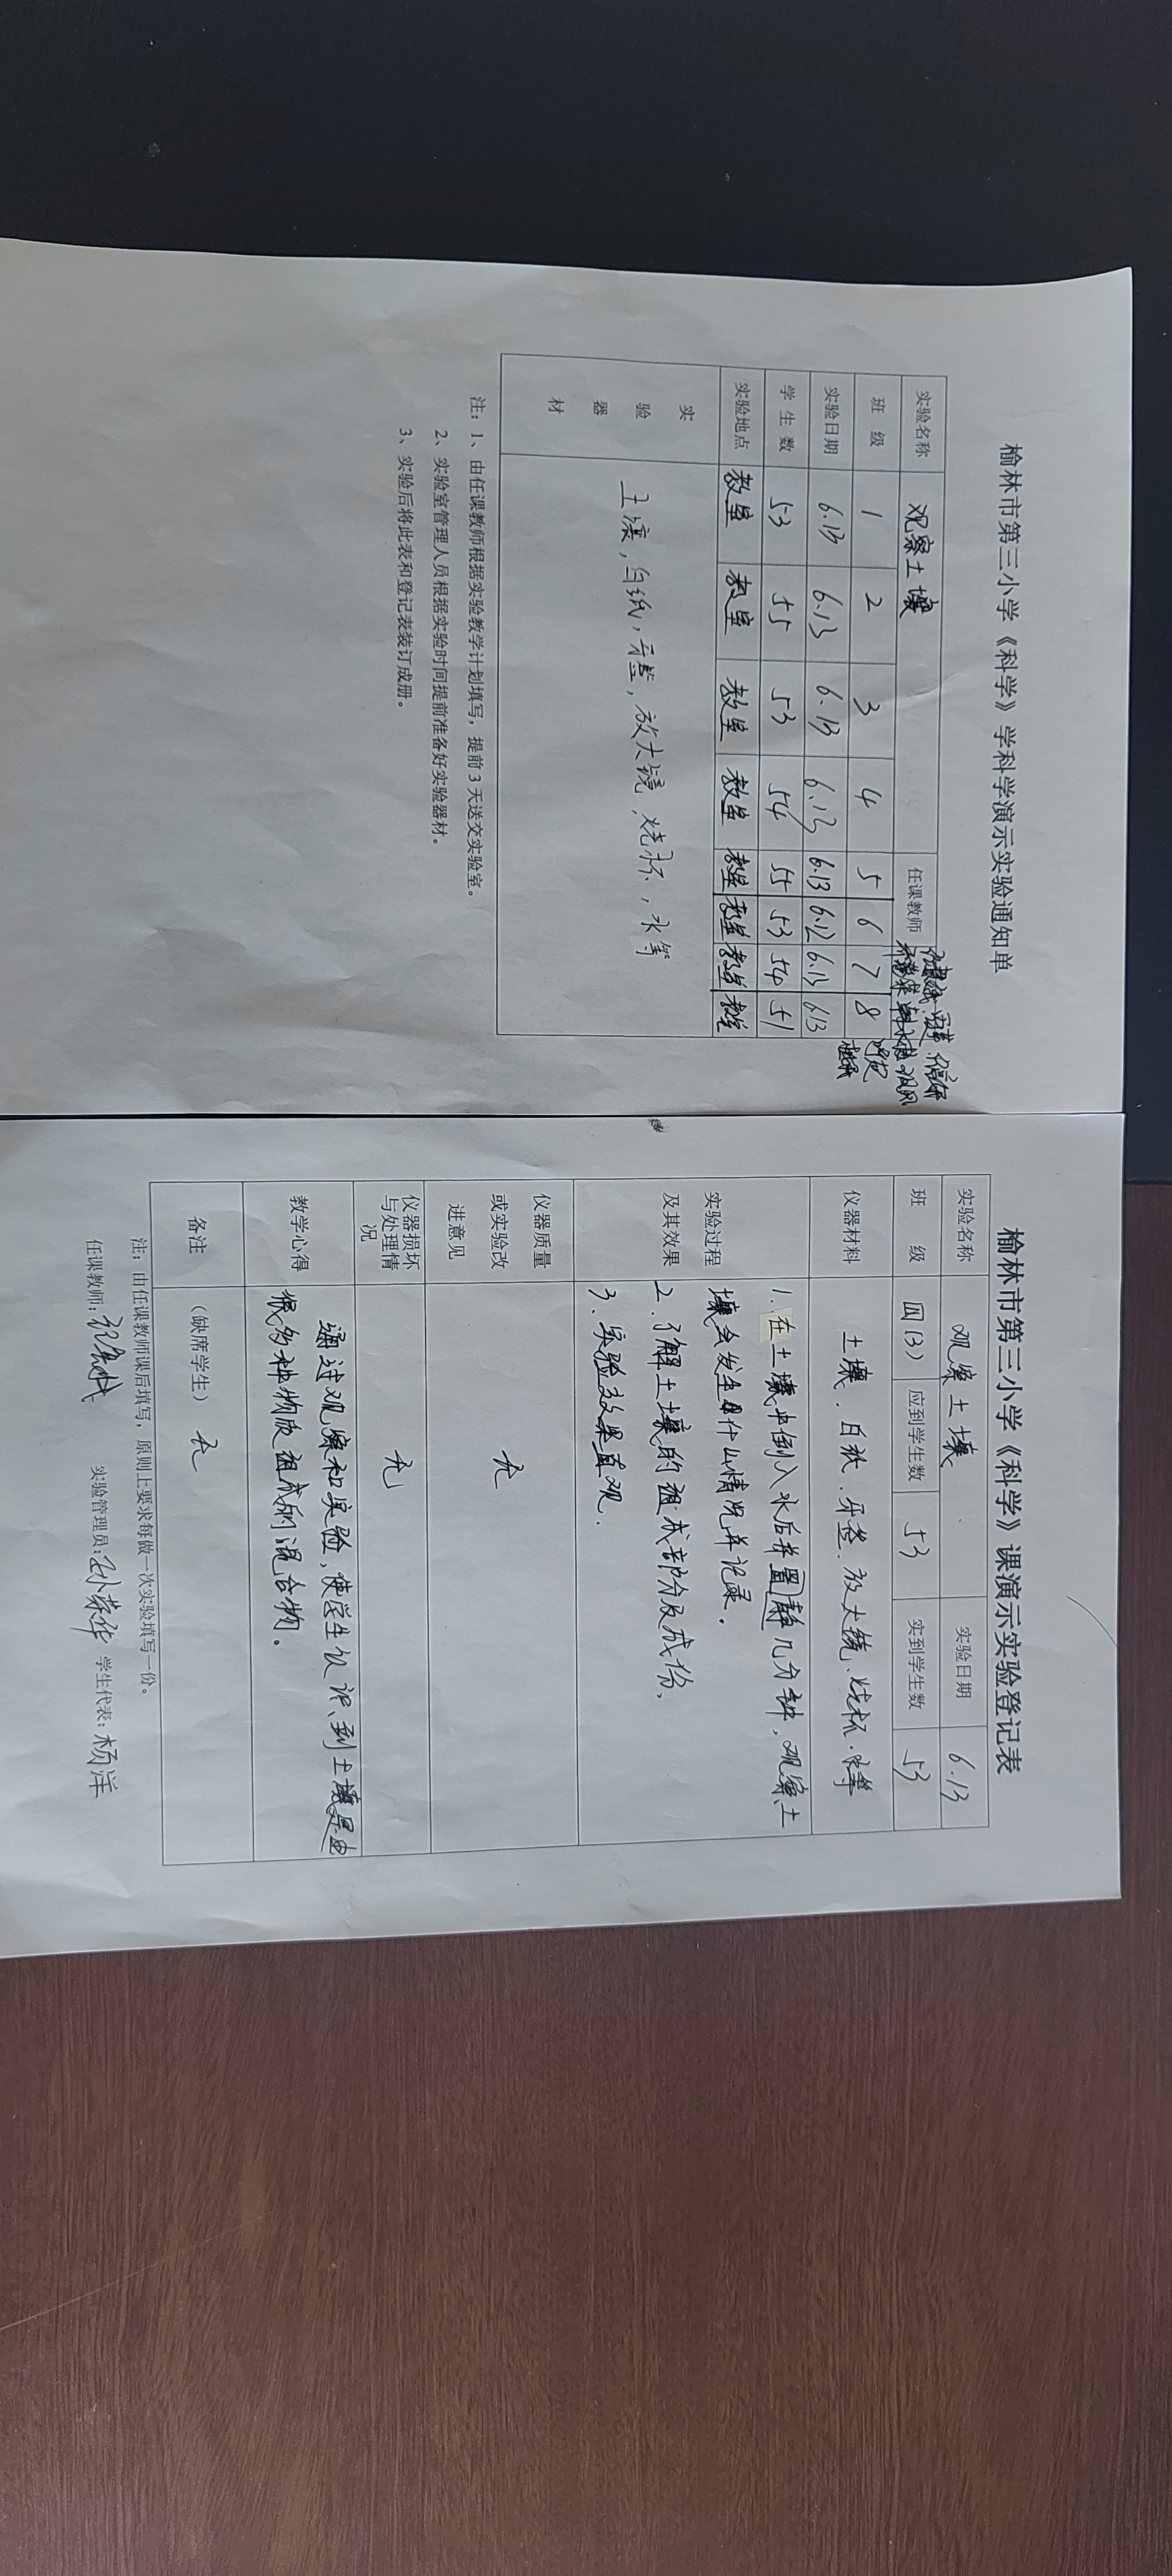 榆林市第三小学《科学》学科学演示实验通知单
实验名称 观察土壤 任课教师
班 级 1 2 3 4 5 6 7 8
实验日期 6.13 6.13 6.13 6.13 6.13 6.12 6.13 6.13
学 生 数 53 55 53 54 55 53 54 51
实验地点 教室 教室 教室 教室 教室 教室 教室 教室
实验器材 土壤,白纸,牙签,放大镜,烧杯,水等
注:1、由任课教师根据实验教学计划填写,提前3天送交实验室。
2、实验室管理人员根据实验时间提前准备好实验器材。
3、实验后将此表和登记表装订成册。
榆林市第三小学《科学》课演示实验登记表
实验名称 观察土壤 实验日期 6.13
班 级 四(3) 应到学生数 53 实到学生数 53
仪器材料 土壤、白纸、牙签、放大镜、烧杯、水等
实验过程
及其效果
1.在土壤中倒入水后并置静几分钟,观察土
壤会发生什么情况并记录。
2.了解土壤的组成部分及成份、
3.实验效果直观.
仪器质量
或实验改
进意见
无
仪器损坏
与处理情
况
无
教学心得
通过观察和实验,使学生认识到土壤是由
很多种物质组成的混合物。
备注 (缺席学生) 无
注:由任课教师课后填写,原则上要求每做一次实验填写一份。
任课教师: 实验管理员:孙荣华 学生代表:杨洋